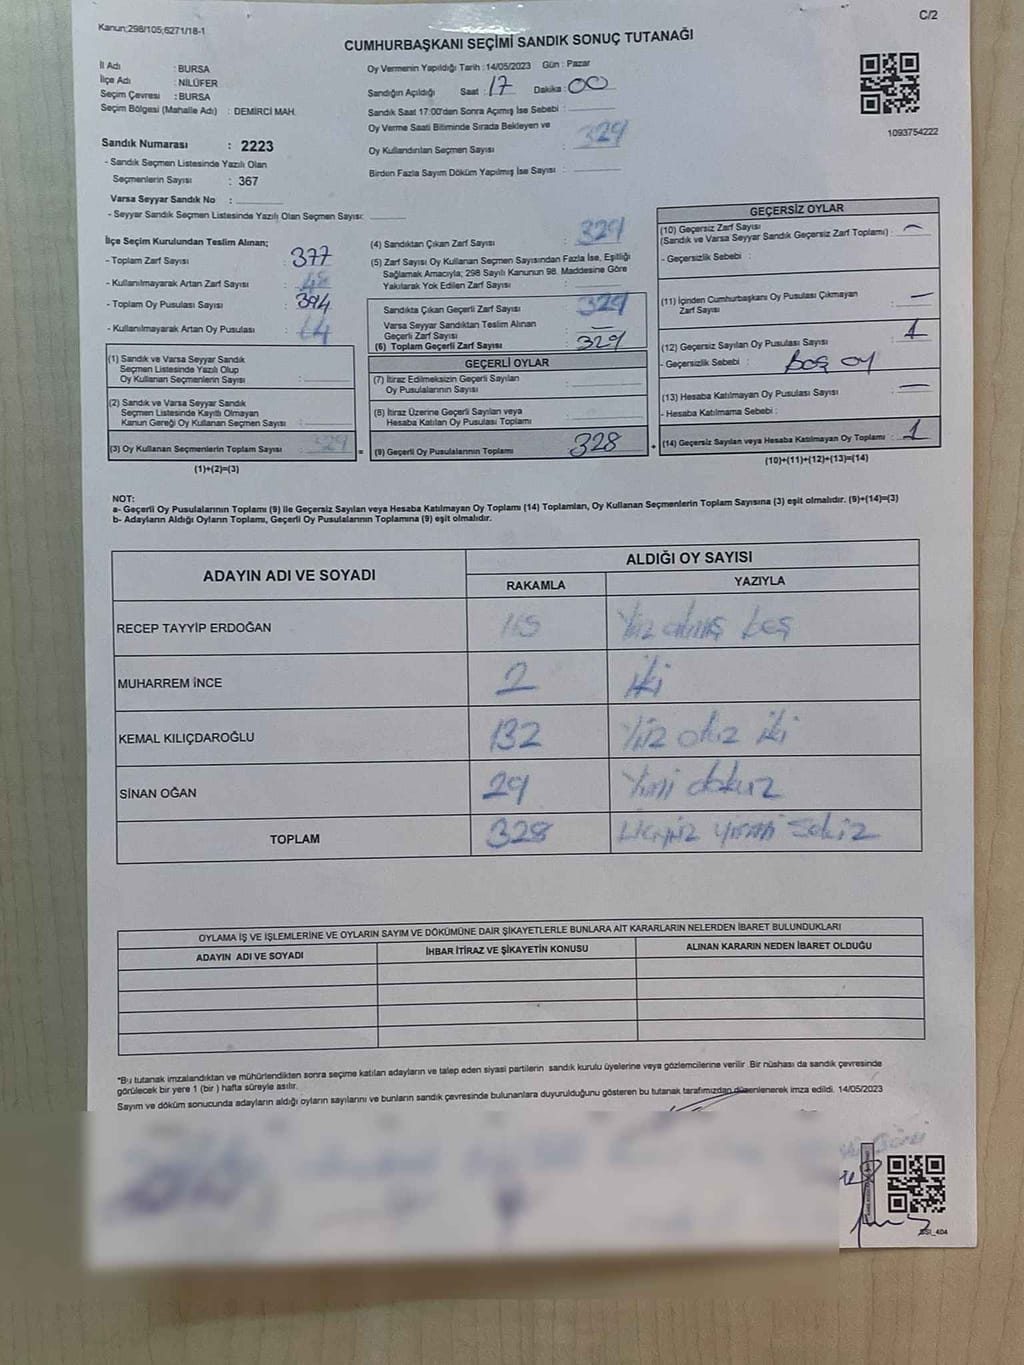 Kanun;298/105;6271/18-1
C/2
CUMHURBAŞKANI SEÇİMİ SANDIK SONUÇ TUTANAĞI
İl Adı : BURSA
İlçe Adı : NİLÜFER
Seçim Çevresi : BURSA
Seçim Bölgesi (Mahalle Adı) : DEMİRCİ MAH.
Oy Vermenin Yapıldığı Tarih : 14/05/2023 Gün : Pazar
Sandığın Açıldığı Saat : 17 Dakika : 00
Sandık Saat 17:00'den Sonra Açımış İse Sebebi :
Oy Verme Saati Bitiminde Sırada Bekleyen ve
Oy Kullandırılan Seçmen Sayısı : 329
Birden Fazla Sayım Döküm Yapılmış İse Sayısı :
1093754222
Sandık Numarası : 2223
- Sandık Seçmen Listesinde Yazılı Olan
Seçmenlerin Sayısı : 367
Varsa Seyyar Sandık No :
- Seyyar Sandık Seçmen Listesinde Yazılı Olan Seçmen Sayısı:
İlçe Seçim Kurulundan Teslim Alınan;
- Toplam Zarf Sayısı : 377
- Kullanılmayarak Artan Zarf Sayısı : 48
- Toplam Oy Pusulası Sayısı : 394
- Kullanılmayarak Artan Oy Pusulası :
(1) Sandık ve Varsa Seyyar Sandık
Seçmen Listesinde Yazılı Olup
Oy Kullanan Seçmenlerin Sayısı :
(2) Sandık ve Varsa Seyyar Sandık
Seçmen Listesinde Kayıtlı Olmayan
Kanun Gereği Oy Kullanan Seçmen Sayısı :
(3) Oy Kullanan Seçmenlerin Toplam Sayısı : 329
(1)+(2)=(3)
(4) Sandıktan Çıkan Zarf Sayısı : 329
(5) Zarf Sayısı Oy Kullanan Seçmen Sayısından Fazla İse, Eşitliği
Sağlamak Amacıyla; 298 Sayılı Kanunun 98. Maddesine Göre
Yakılarak Yok Edilen Zarf Sayısı :
Sandıkta Çıkan Geçerli Zarf Sayısı : 329
Varsa Seyyar Sandıktan Teslim Alınan
Geçerli Zarf Sayısı : —
(6) Toplam Geçerli Zarf Sayısı : 329
GEÇERLİ OYLAR
(7) İtiraz Edilmeksizin Geçerli Sayılan
Oy Pusulalarının Sayısı :
(8) İtiraz Üzerine Geçerli Sayılan veya
Hesaba Katılan Oy Pusulası Toplamı :
= (9) Geçerli Oy Pusulalarının Toplamı : 328 +
GEÇERSİZ OYLAR
(10) Geçersiz Zarf Sayısı
(Sandık ve Varsa Seyyar Sandık Geçersiz Zarf Toplamı) : —
- Geçersizlik Sebebi :
(11) İçinden Cumhurbaşkanı Oy Pusulası Çıkmayan
Zarf Sayısı : —
(12) Geçersiz Sayılan Oy Pusulası Sayısı : 1
- Geçersizlik Sebebi : Boş oy
(13) Hesaba Katılmayan Oy Pusulası Sayısı : —
- Hesaba Katılmama Sebebi :
(14) Geçersiz Sayılan veya Hesaba Katılmayan Oy Toplamı : 1
(10)+(11)+(12)+(13)=(14)
NOT:
a- Geçerli Oy Pusulalarının Toplamı (9) ile Geçersiz Sayılan veya Hesaba Katılmayan Oy Toplamı (14) Toplamları, Oy Kullanan Seçmenlerin Toplam Sayısına (3) eşit olmalıdır. (9)+(14)=(3)
b- Adayların Aldığı Oyların Toplamı, Geçerli Oy Pusulalarının Toplamına (9) eşit olmalıdır.
ADAYIN ADI VE SOYADI
ALDIĞI OY SAYISI
RAKAMLA YAZIYLA
RECEP TAYYİP ERDOĞAN 165 Yüz altmış beş
MUHARREM İNCE 2 iki
KEMAL KILIÇDAROĞLU 132 Yüz otuz iki
SİNAN OĞAN 29 Yirmi dokuz
TOPLAM 328 üçyüz yirmi sekiz
OYLAMA İŞ VE İŞLEMLERİNE VE OYLARIN SAYIM VE DÖKÜMÜNE DAİR ŞİKAYETLERLE BUNLARA AİT KARARLARIN NELERDEN İBARET BULUNDUKLARI
ADAYIN ADI VE SOYADI İHBAR İTİRAZ VE ŞİKAYETİN KONUSU ALINAN KARARIN NEDEN İBARET OLDUĞU
*Bu tutanak imzalandıktan ve mühürlendikten sonra seçime katılan adayların ve talep eden siyasi partilerin sandık kurulu üyelerine veya gözlemcilerine verilir. Bir nüshası da sandık çevresinde
görülecek bir yere 1 (bir ) hafta süreyle asılır.
Sayım ve döküm sonucunda adayların aldığı oyların sayılarını ve bunların sandık çevresinde bulunanlara duyurulduğunu gösteren bu tutanak tarafımızdan düzenlenerek imza edildi. 14/05/2023